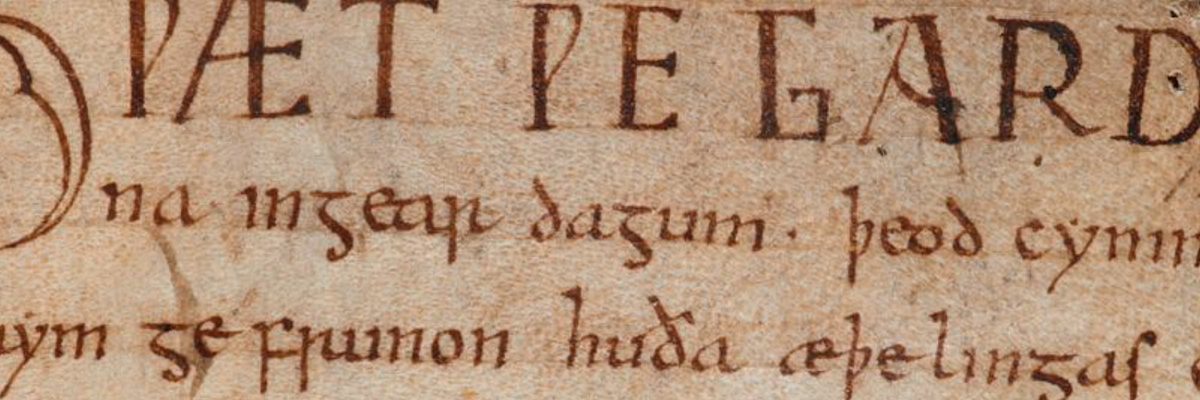 HǷÆT ǷE GARD
na ingear dagum. þeod cynin
rym gefrunon huða æþelingas